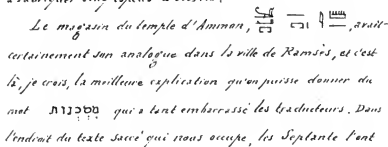 Le magasin du temple d'Ammon, , avait
certainement son analogue dans la ville de Ramsès, et c'est
là, je crois, la meilleure explication qu'on puisse donner du
mot מסכנות qui a tant embarrassé les traducteurs. Dans
l'endroit du texte sacré qui nous occupe, les Septante l'ont